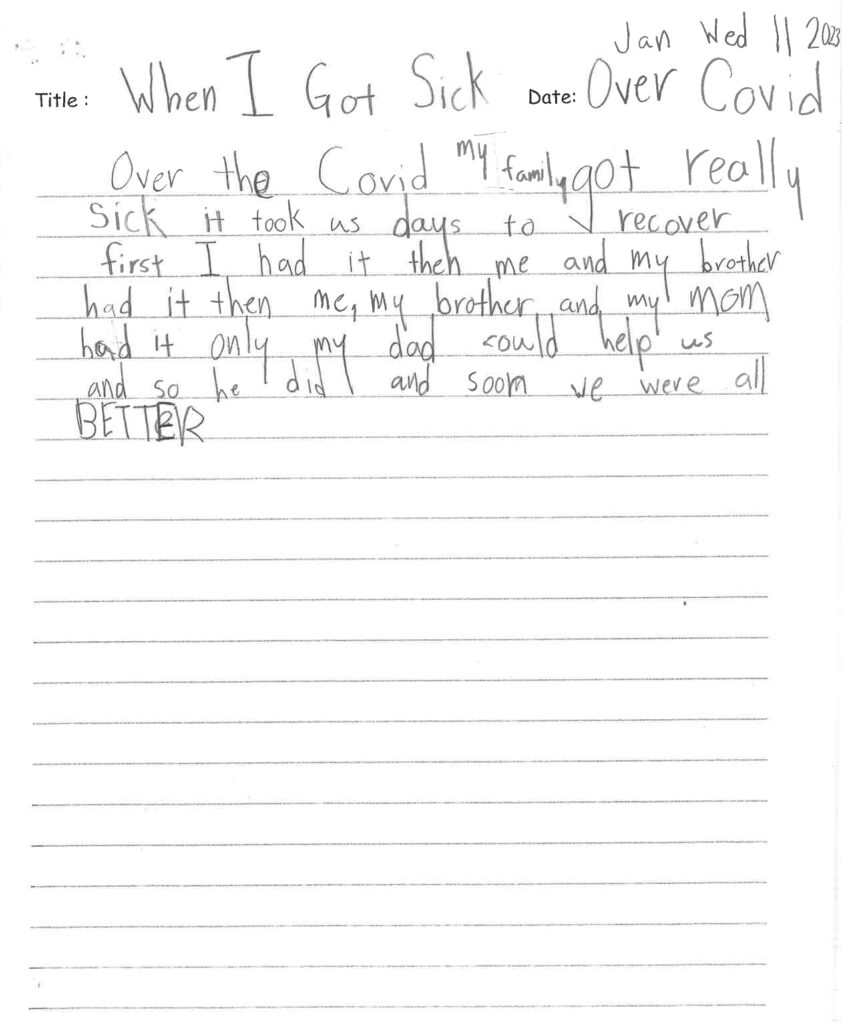 Jan Wed 11 2023
Title: When I Got Sick Date: Over Covid
Over the Covid my family got really
Sick it took us days to recover
first I had it then me and my brother
had it then me, my brother and my MOM
had it only my dad could help us
and so he did and soon we were all
BETTER